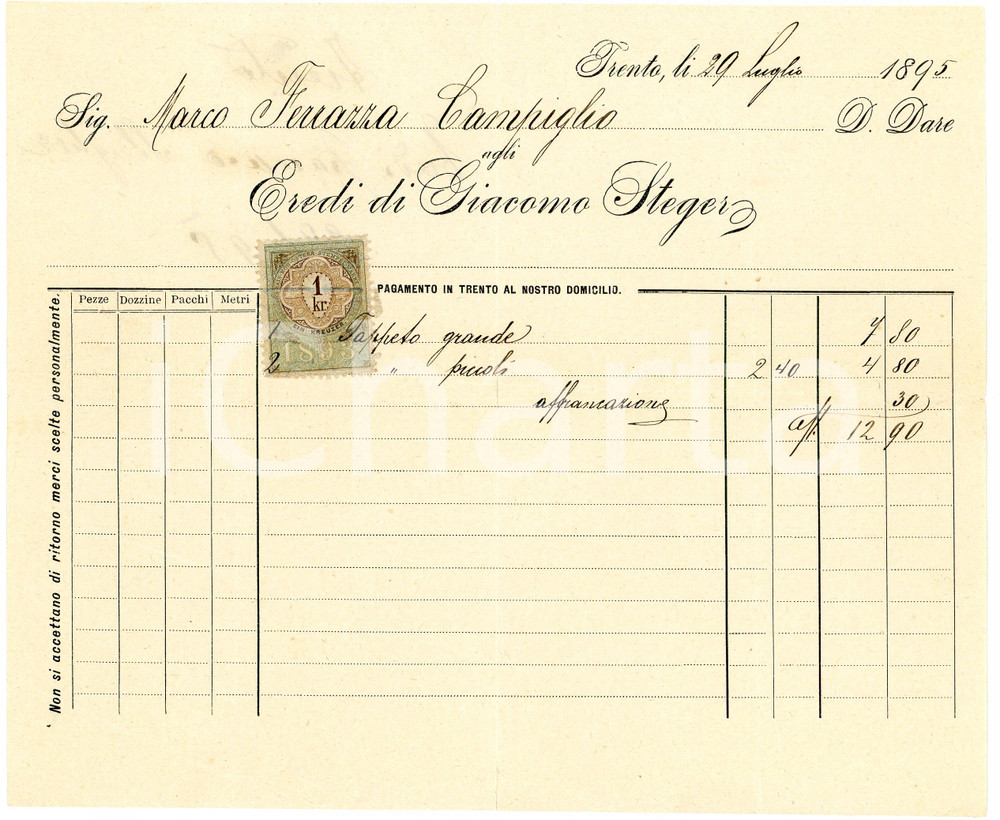 Trento, li 29 Luglio 1895
Sig. Marco Ferrazza Campiglio D. Dare
agli
Eredi di Giacomo Steger
PAGAMENTO IN TRENTO AL NOSTRO DOMICILIO.
Pezze Dozzine Pacchi Metri
1 kr.
EIN KREUZER
1893
1 Tappeto grande 7 80
2 " piccoli 2 40 4 80
affrancazione 30
aff. 12 90
Non si accettano di ritorno merci scelte personalmente.
iCharta